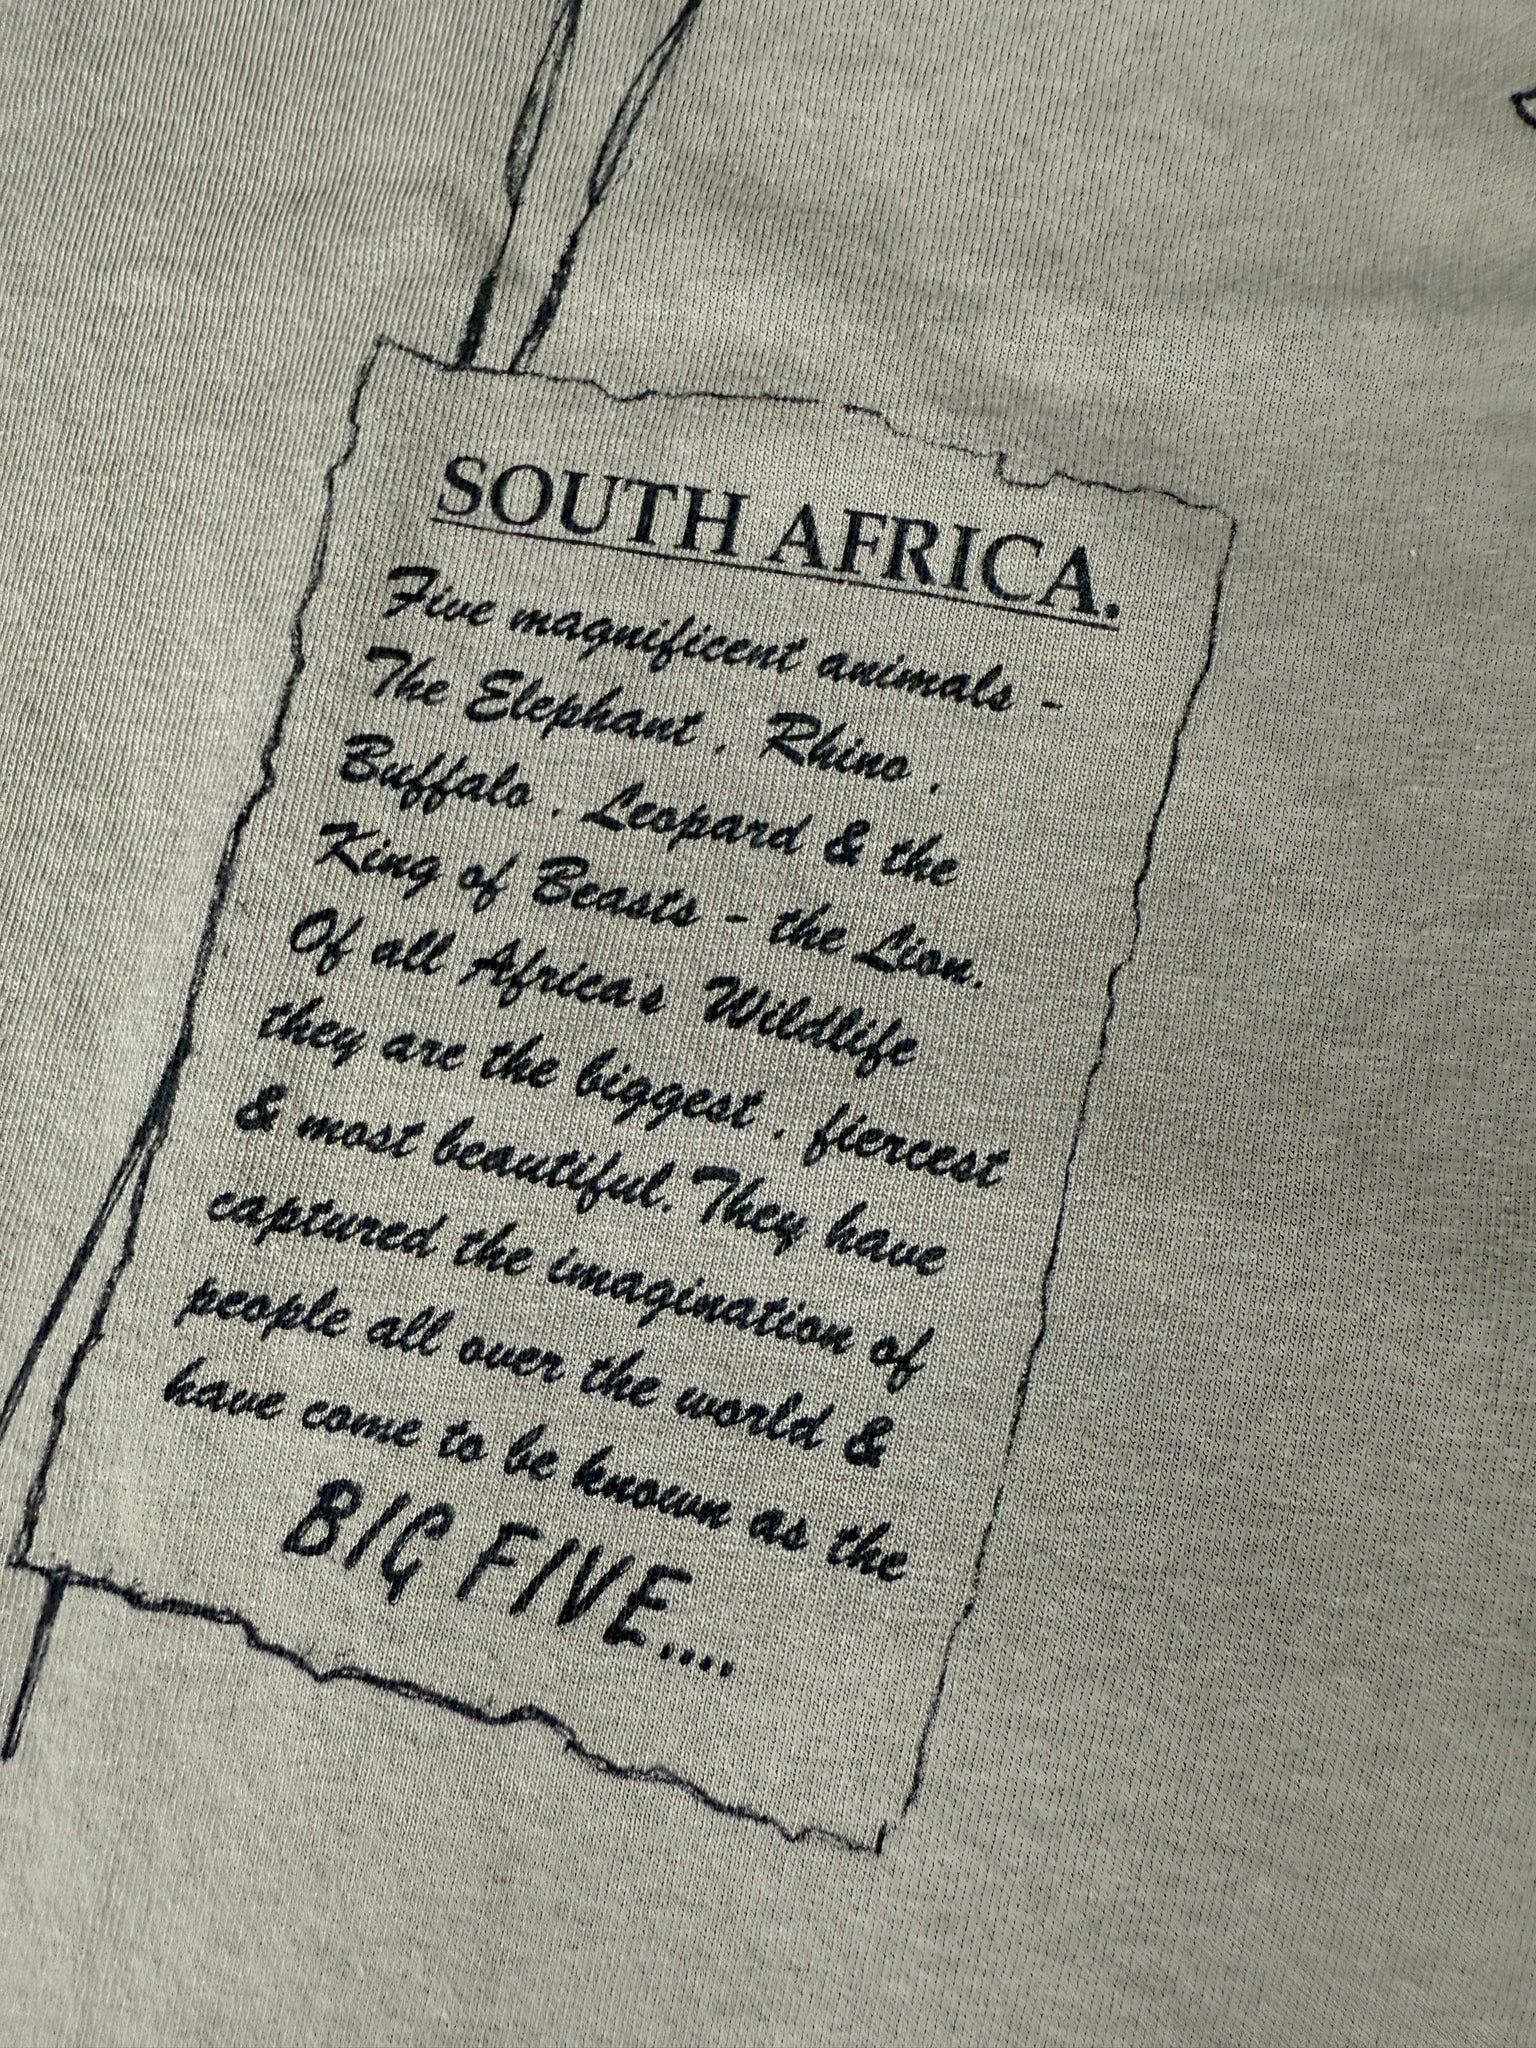 SOUTH AFRICA.
Five magnificent animals -
The Elephant , Rhino ,
Buffalo , Leopard & the
King of Beasts - the Lion.
Of all Africa's Wildlife
they are the biggest , fiercest
& most beautiful. They have
captured the imagination of
people all over the world &
have come to be known as the
BIG FIVE....